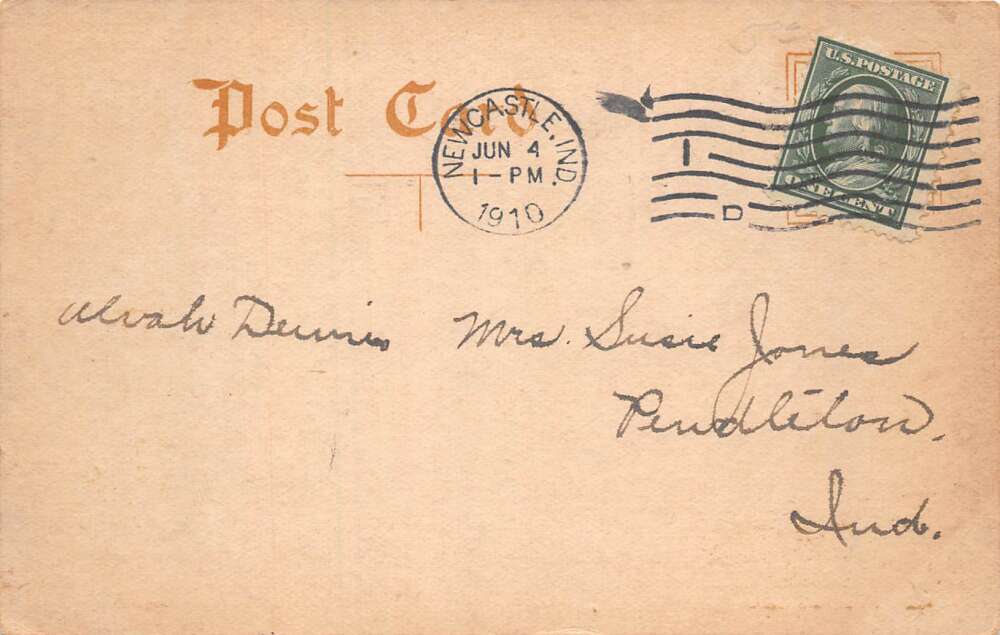 Post Card
NEWCASTLE, IND.
JUN 4
1-PM
1910
1
D
U.S. POSTAGE
ONE CENT
Alvah Dennis
Mrs. Susie Jones
Pendleton,
Ind.